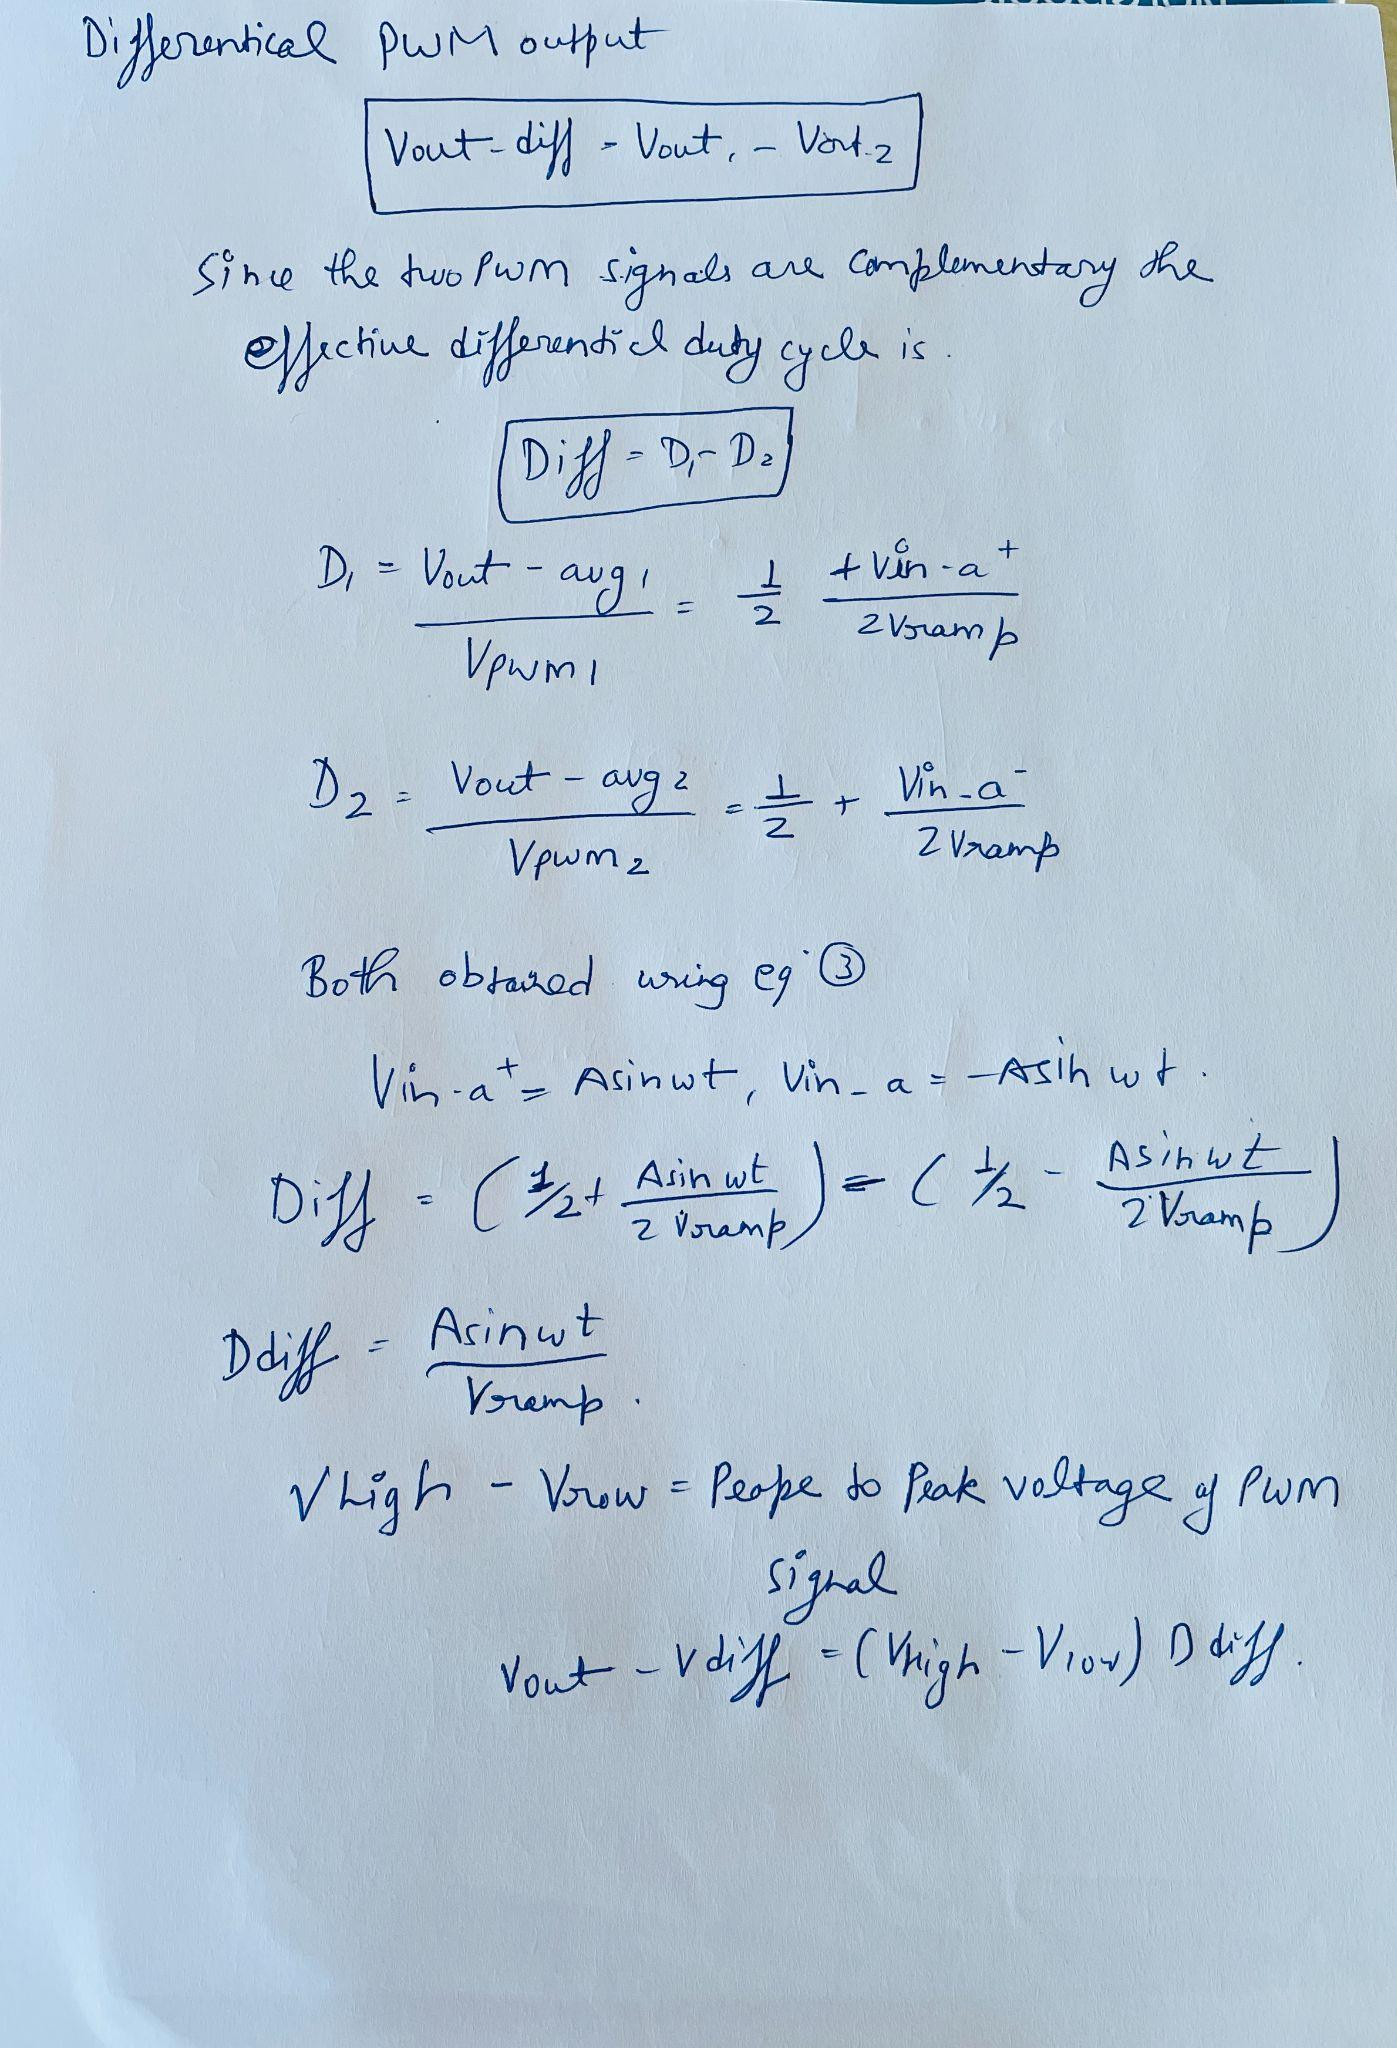 Differentical PWM output
Vout-diff = Vout1 - Vout-2
Since the two PWM signals are complementary the
effective differential duty cycle is.
Diff = D1 - D2
D1 = Vout - avg1 / Vpwm1 = 1/2 + Vin-a⁺ / 2Vramp
D2 = Vout - avg2 / Vpwm2 = 1/2 + Vin-a⁻ / 2Vramp
Both obtained using eq ③
Vin-a⁺ = Asinwt, Vin-a = -Asinwt.
Diff = (1/2 + Asinwt / 2Vramp) = (1/2 - Asinwt / 2Vramp)
Ddiff = Asinwt / Vramp.
Vhigh - Vrow = Peape to Peak voltage of PWM
signal
Vout - Vdiff = (Vhigh - Vlow) Ddiff.